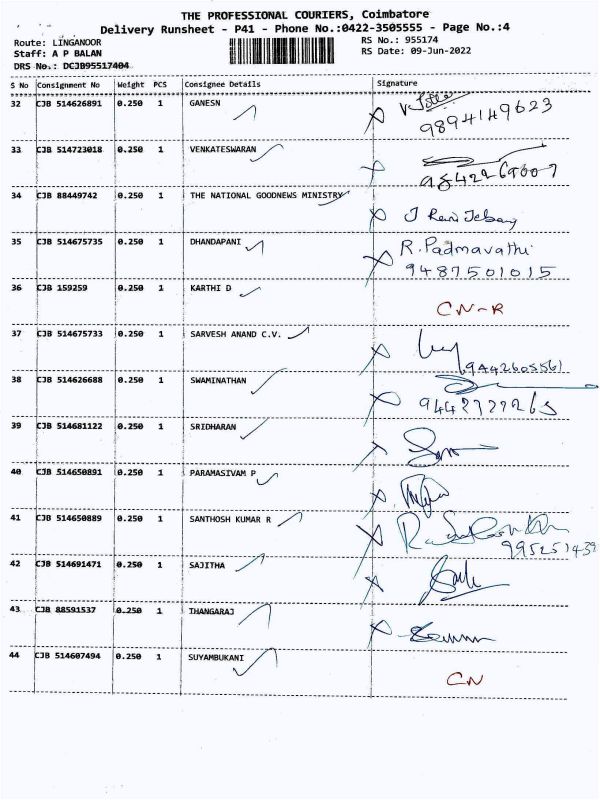 THE PROFESSIONAL COURIERS, Coimbatore
Delivery Runsheet - P41 - Phone No.:0422-3505555 - Page No.:4
Route: LINGANOOR RS No.: 955174
Staff: A P BALAN RS Date: 09-Jun-2022
DRS No.: DCJB95517404
S No Consignment No Weight PCS Consignee Details Signature
32 CJB 514626891 0.250 1 GANESN
9894149623
33 CJB 514723018 0.250 1 VENKATESWARAN
34 CJB 88449742 0.250 1 THE NATIONAL GOODNEWS MINISTRY
35 CJB 514675735 0.250 1 DHANDAPANI R. Padmavathi
9487501015
36 CJB 159259 0.250 1 KARTHI D
CN-R
37 CJB 514675733 0.250 1 SARVESH ANAND C.V.
9442605561
38 CJB 514626688 0.250 1 SWAMINATHAN
39 CJB 514681122 0.250 1 SRIDHARAN
40 CJB 514650891 0.250 1 PARAMASIVAM P
41 CJB 514650889 0.250 1 SANTHOSH KUMAR R
42 CJB 514691471 0.250 1 SAJITHA
43 CJB 88591537 0.250 1 THANGARAJ
44 CJB 514607494 0.250 1 SUYAMBUKANI
CN